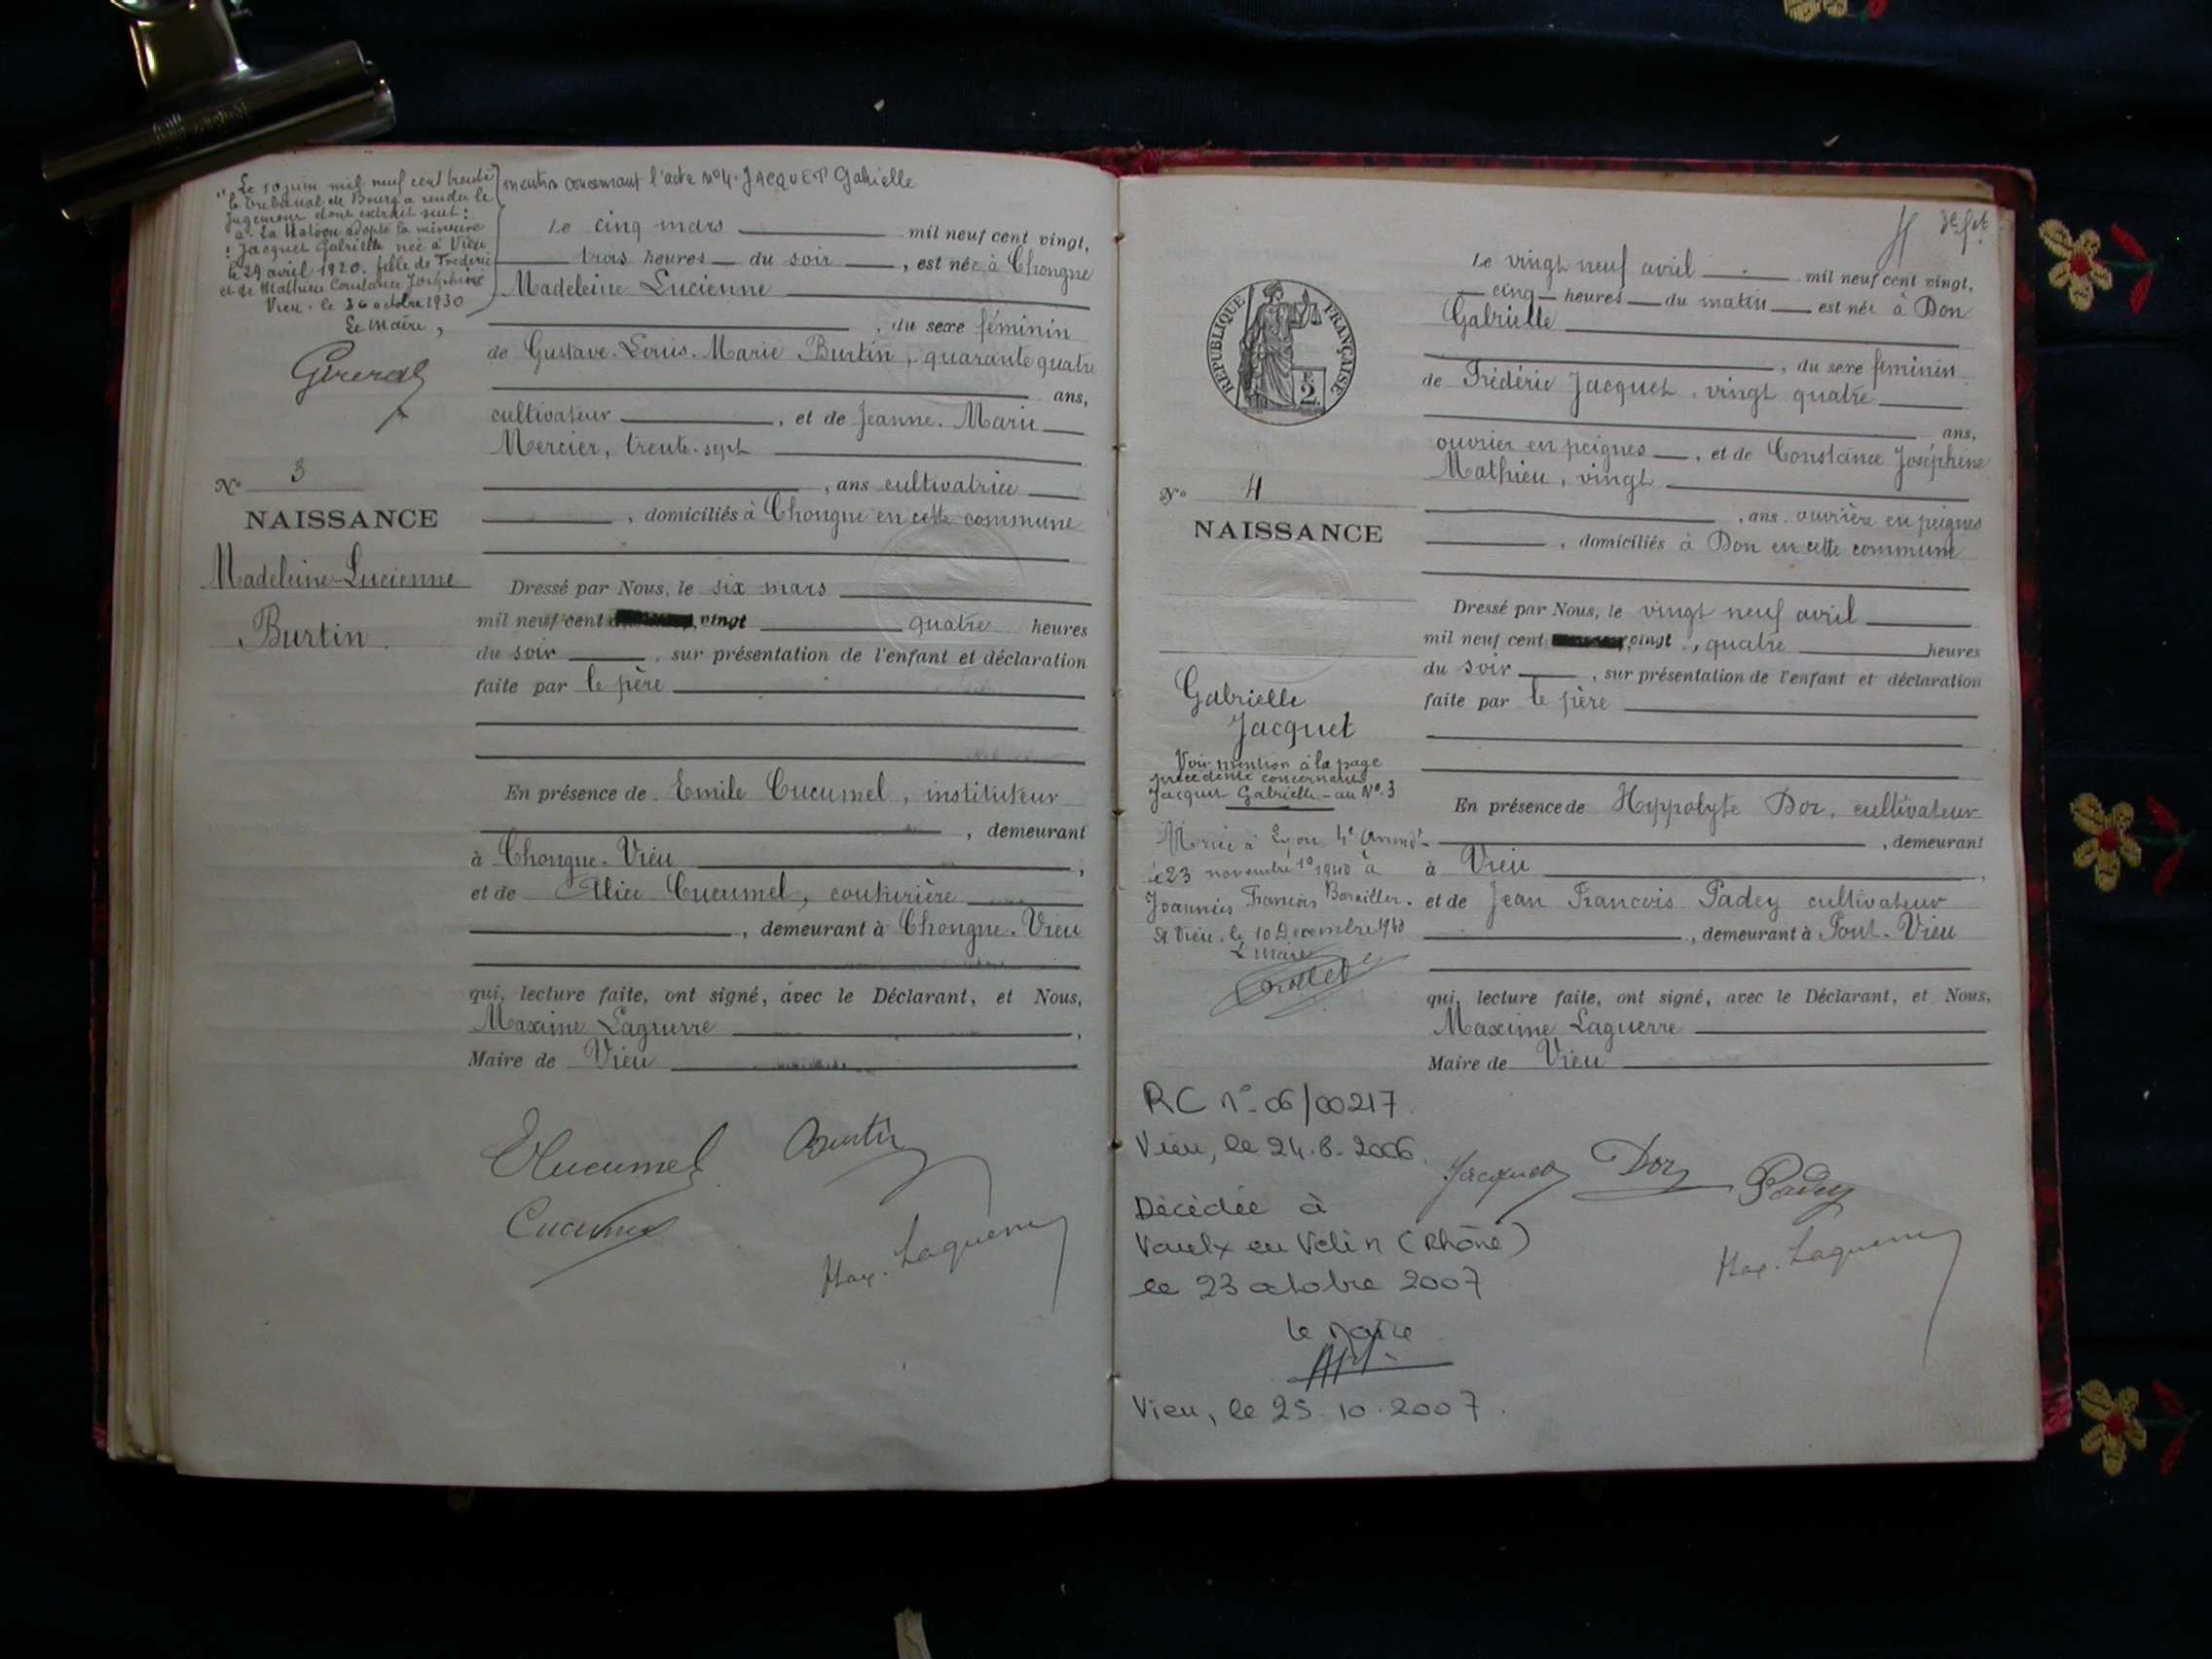 "Le 10 juin mil neuf cent trente
le tribunal de Bourg a rendu le
jugement dont extrait suit :
La Nation adopte la mineure
Jacquet Gabrielle née à Vieu
le 29 avril 1920. fille de Frédéric
et de Mathieu Constance Joséphine
Vieu. le 26 octobre 1930
Le Maire,
mention concernant l'acte N°4. JACQUET Gabrielle
Le cinq mars mil neuf cent vingt,
trois heures du soir, est née à Chongne
Madeleine Lucienne
, du sexe féminin
de Gustave. Louis. Marie Burtin, quarante quatre
ans,
cultivateur, et de Jeanne. Marie
Mercier, trente. sept
, ans cultivatrice
, domiciliés à Chongne en cette commune
N° 3
NAISSANCE
Madeleine-Lucienne
Burtin
Dressé par Nous, le six mars
mil neuf cent vingt quatre heures
du soir, sur présentation de l'enfant et déclaration
faite par le père
En présence de Emile Cucumel, instituteur
, demeurant
à Chongne. Vieu,
et de Alice Cucumel, couturière
, demeurant à Chongne. Vieu
qui, lecture faite, ont signé, avec le Déclarant, et Nous,
Maxime Laguerre,
Maire de Vieu
Cucumel Burtin
Cucumel
Max. Laguerre
REPUBLIQUE FRANÇAISE
2
Le vingt neuf avril mil neuf cent vingt,
cinq heures du matin est née à Don
Gabrielle
, du sexe féminin
de Frédéric Jacquet, vingt quatre
ans,
ouvrier en peignes, et de Constance Joséphine
Mathieu, vingt
, ans ouvrière en peignes
, domiciliés à Don en cette commune
N° 4
NAISSANCE
Gabrielle
Jacquet
Voir mention à la page
précédente concernant
Jacquet Gabrielle - au N°.3
Mariée à Lyon 4e
le 23 novembre 1940 à
Joannès François
A Vieu. le 10 Décembre 1940
Le Maire
Dressé par Nous, le vingt neuf avril
mil neuf cent vingt, quatre heures
du soir, sur présentation de l'enfant et déclaration
faite par le père
En présence de Hippolyte Dor, cultivateur
, demeurant
à Vieu,
et de Jean François Padey cultivateur
, demeurant à Pont. Vieu
qui, lecture faite, ont signé, avec le Déclarant, et Nous,
Maxime Laguerre
Maire de Vieu
RC n° 06/00217
Vieu, le 24.8.2006
Jacquet Dor Padey
Max. Laguerre
Décédée à
Vaulx en Velin (Rhône)
le 23 octobre 2007
le Maire
Vieu, le 25.10.2007.